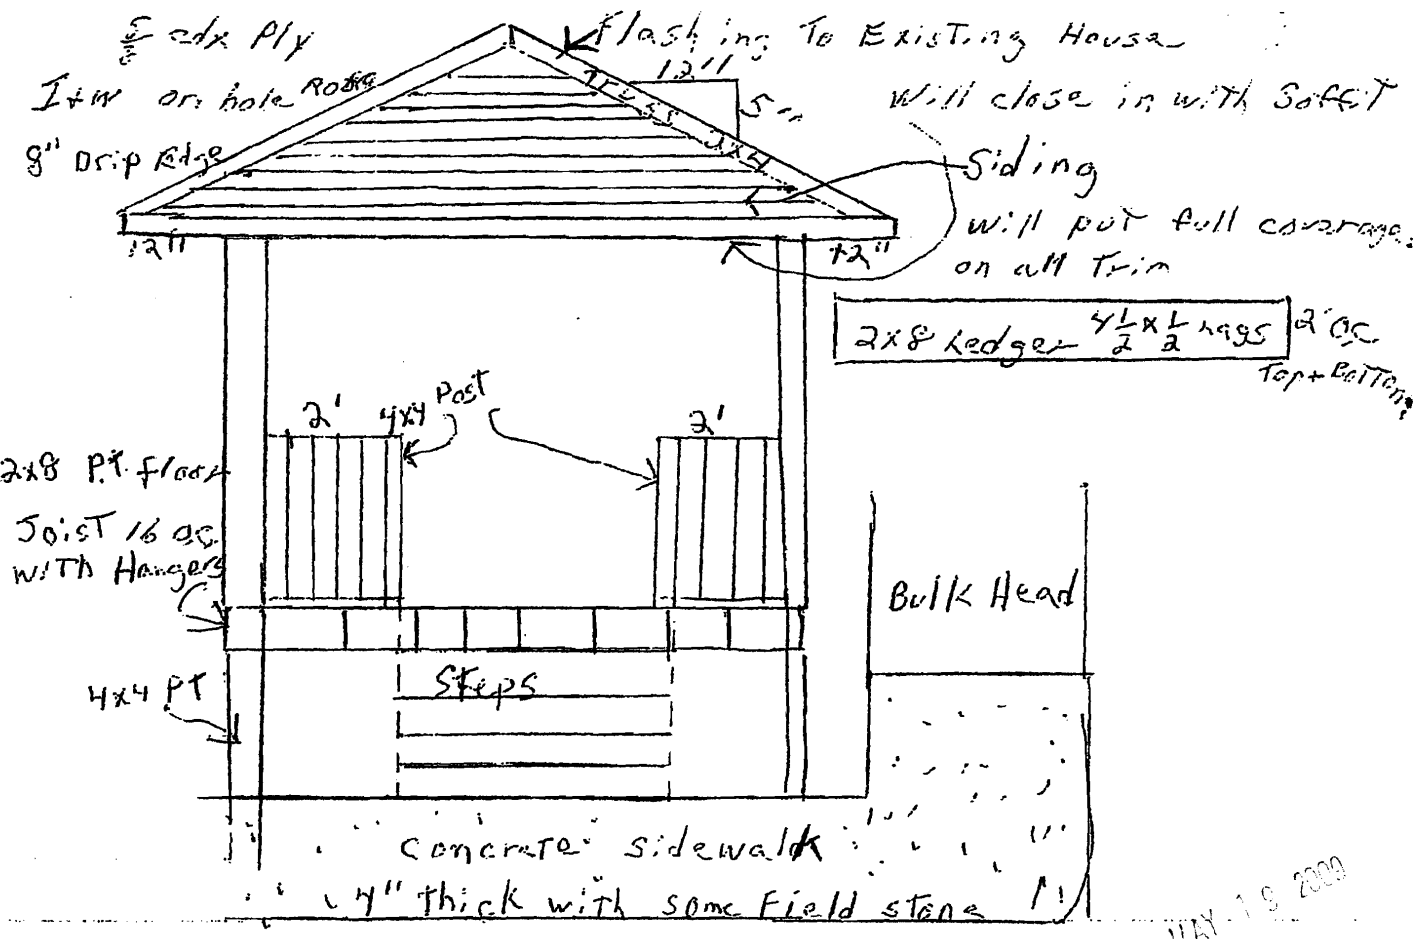 5/8 cdx Ply
Flashing To Existing House
I+W on hole Roof
Truss 2x4
12"
5"
Will close in with Soffit
8" Drip Edge
Siding
will put full coverage
on all Trim
12"
12"
2x8 Ledger 4 1/2 x 1/2 Lags 2' oc
Top + Bottom
2' 4x4 Post 2'
2x8 P.T. floor
Joist 16 oc
with Hangers
Bulk Head
4x4 PT
Steps
Concrete Sidewalk
4" thick with some Field stone
MAY 19 2009